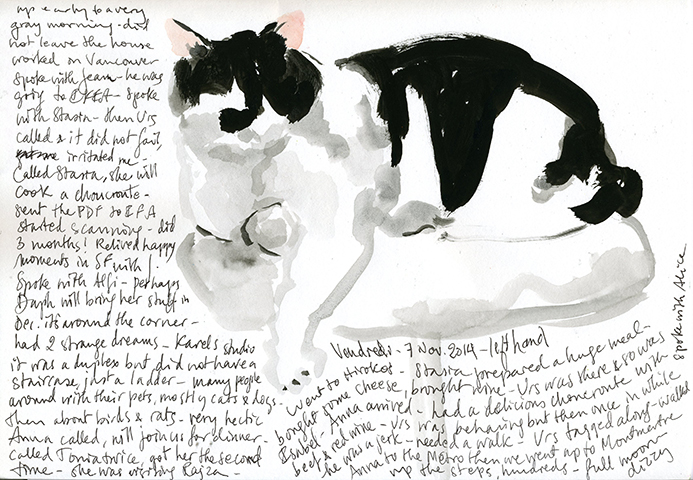 up early to a very
gray morning - did
not leave the house
worked on Vancouver
spoke with Jean - he was
going to IKEA - spoke
with Stasia - then Urs
called & it did not fail,
irritated me -
Called Stasia, she will
cook a choucroute -
sent the PDF to
started scanning - did
3 months! Relived happy
moments in SF with J.
Spoke with Alfi - perhaps
Daph will bring her stuff in
Dec. it's around the corner -
had 2 strange dreams - Karel's studio
it was a duplex but did not have a
staircase, just a ladder - many people
around with their pets, mostly cats & dogs -
then about birds & rats - very hectic
Anna called, will join us for dinner -
called Tonia twice, got her the second
time - she was visiting
Vendredi - 7 Nov. 2014 - left hand
Went to Hiroko's - Stasia prepared a huge meal -
bought some cheese, brought wine - Urs was there & so was
Isabel - Anna arrived - had a delicious choucroute with
beef & red wine - Urs was behaving but then once in while
he was a jerk - needed a walk - Urs tagged along - walked
Anna to the Métro then we went up to Montmartre
up the steps, hundreds - full moon
dizzy
spoke with Alice